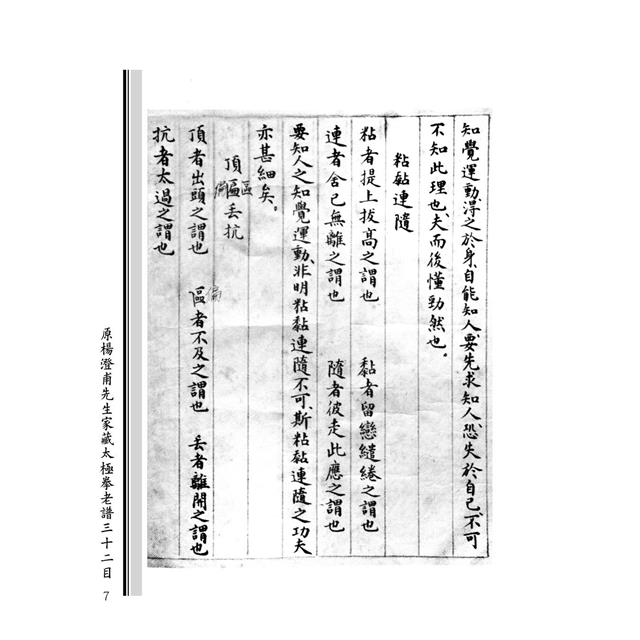 知覺運動、得之於身、自能知人、要先求知人、恐失於自己、不可
不知此理也、夫而後懂勁然也。
粘黏連隨
粘者提上拔高之謂也 黏者留戀繾綣之謂也
連者舍己無離之謂也 隨者彼走此應之謂也
要知人之知覺運動、非明粘黏連隨不可、斯粘黏連隨之功夫
亦甚細矣。
頂匾丟抗
頂者出頭之謂也 匾者不及之謂也 丟者離開之謂也
抗者太過之謂也
原楊澄甫先生家藏太極拳老譜三十二目
7